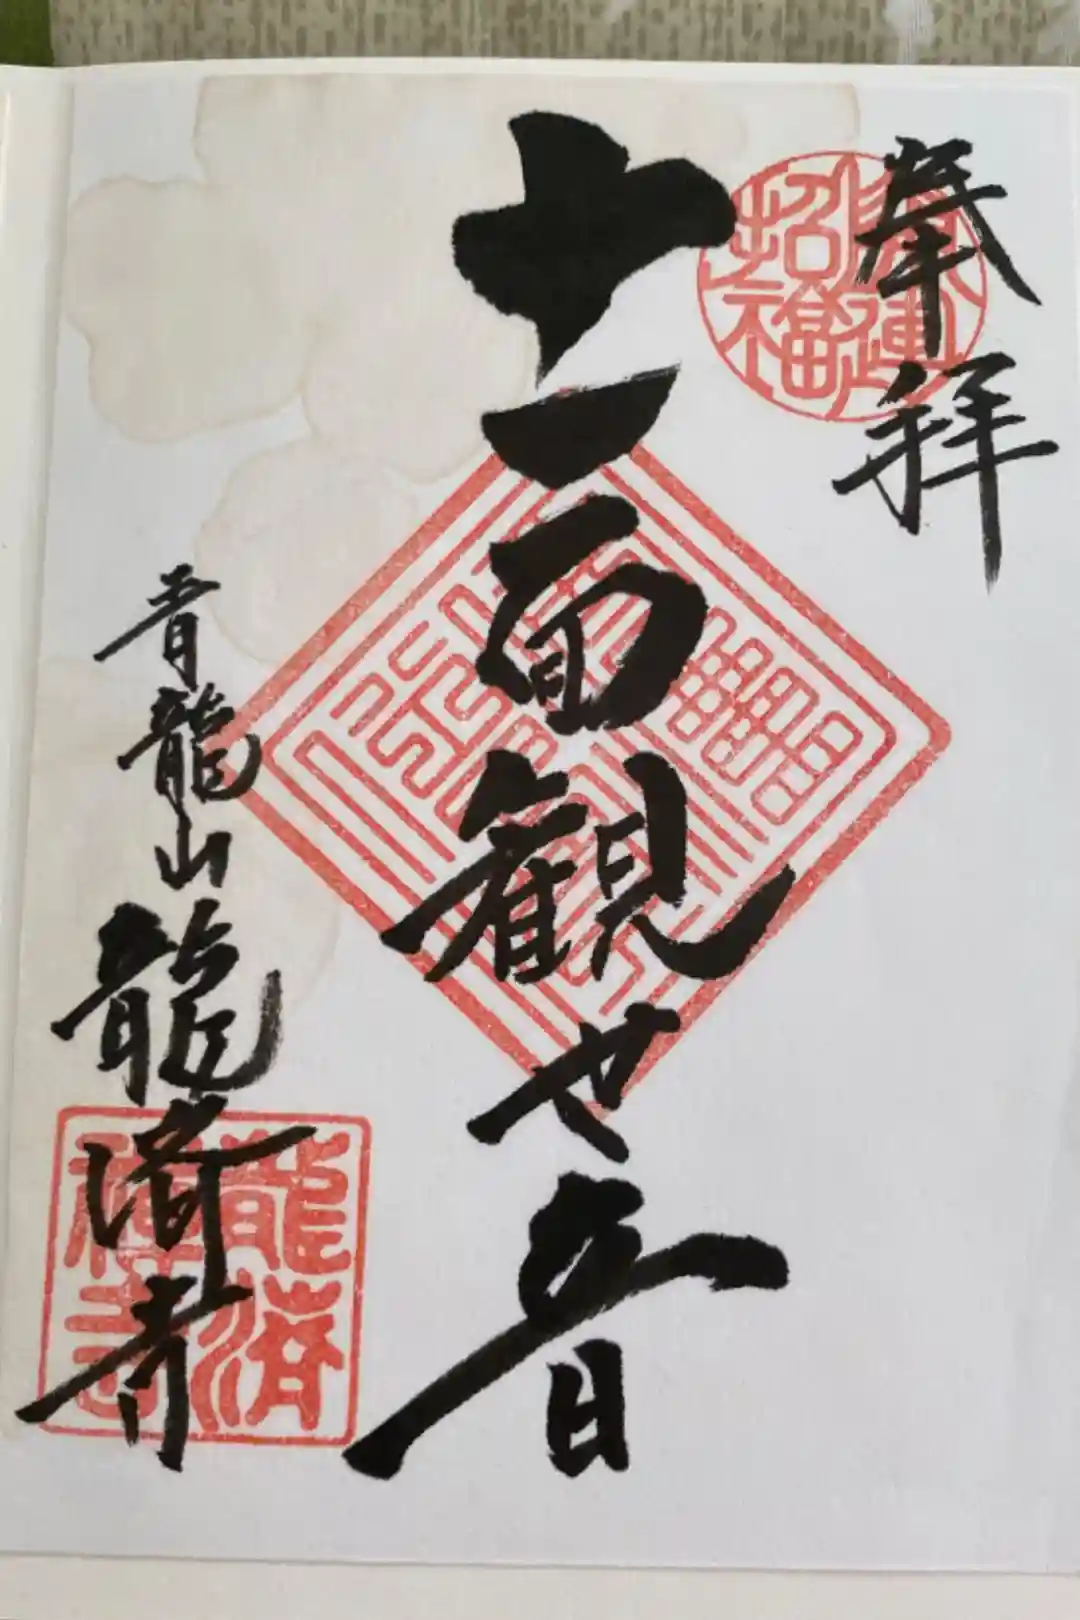 奉拝
開運
招福
十一面観世音
青龍山龍済寺
龍済
禅寺